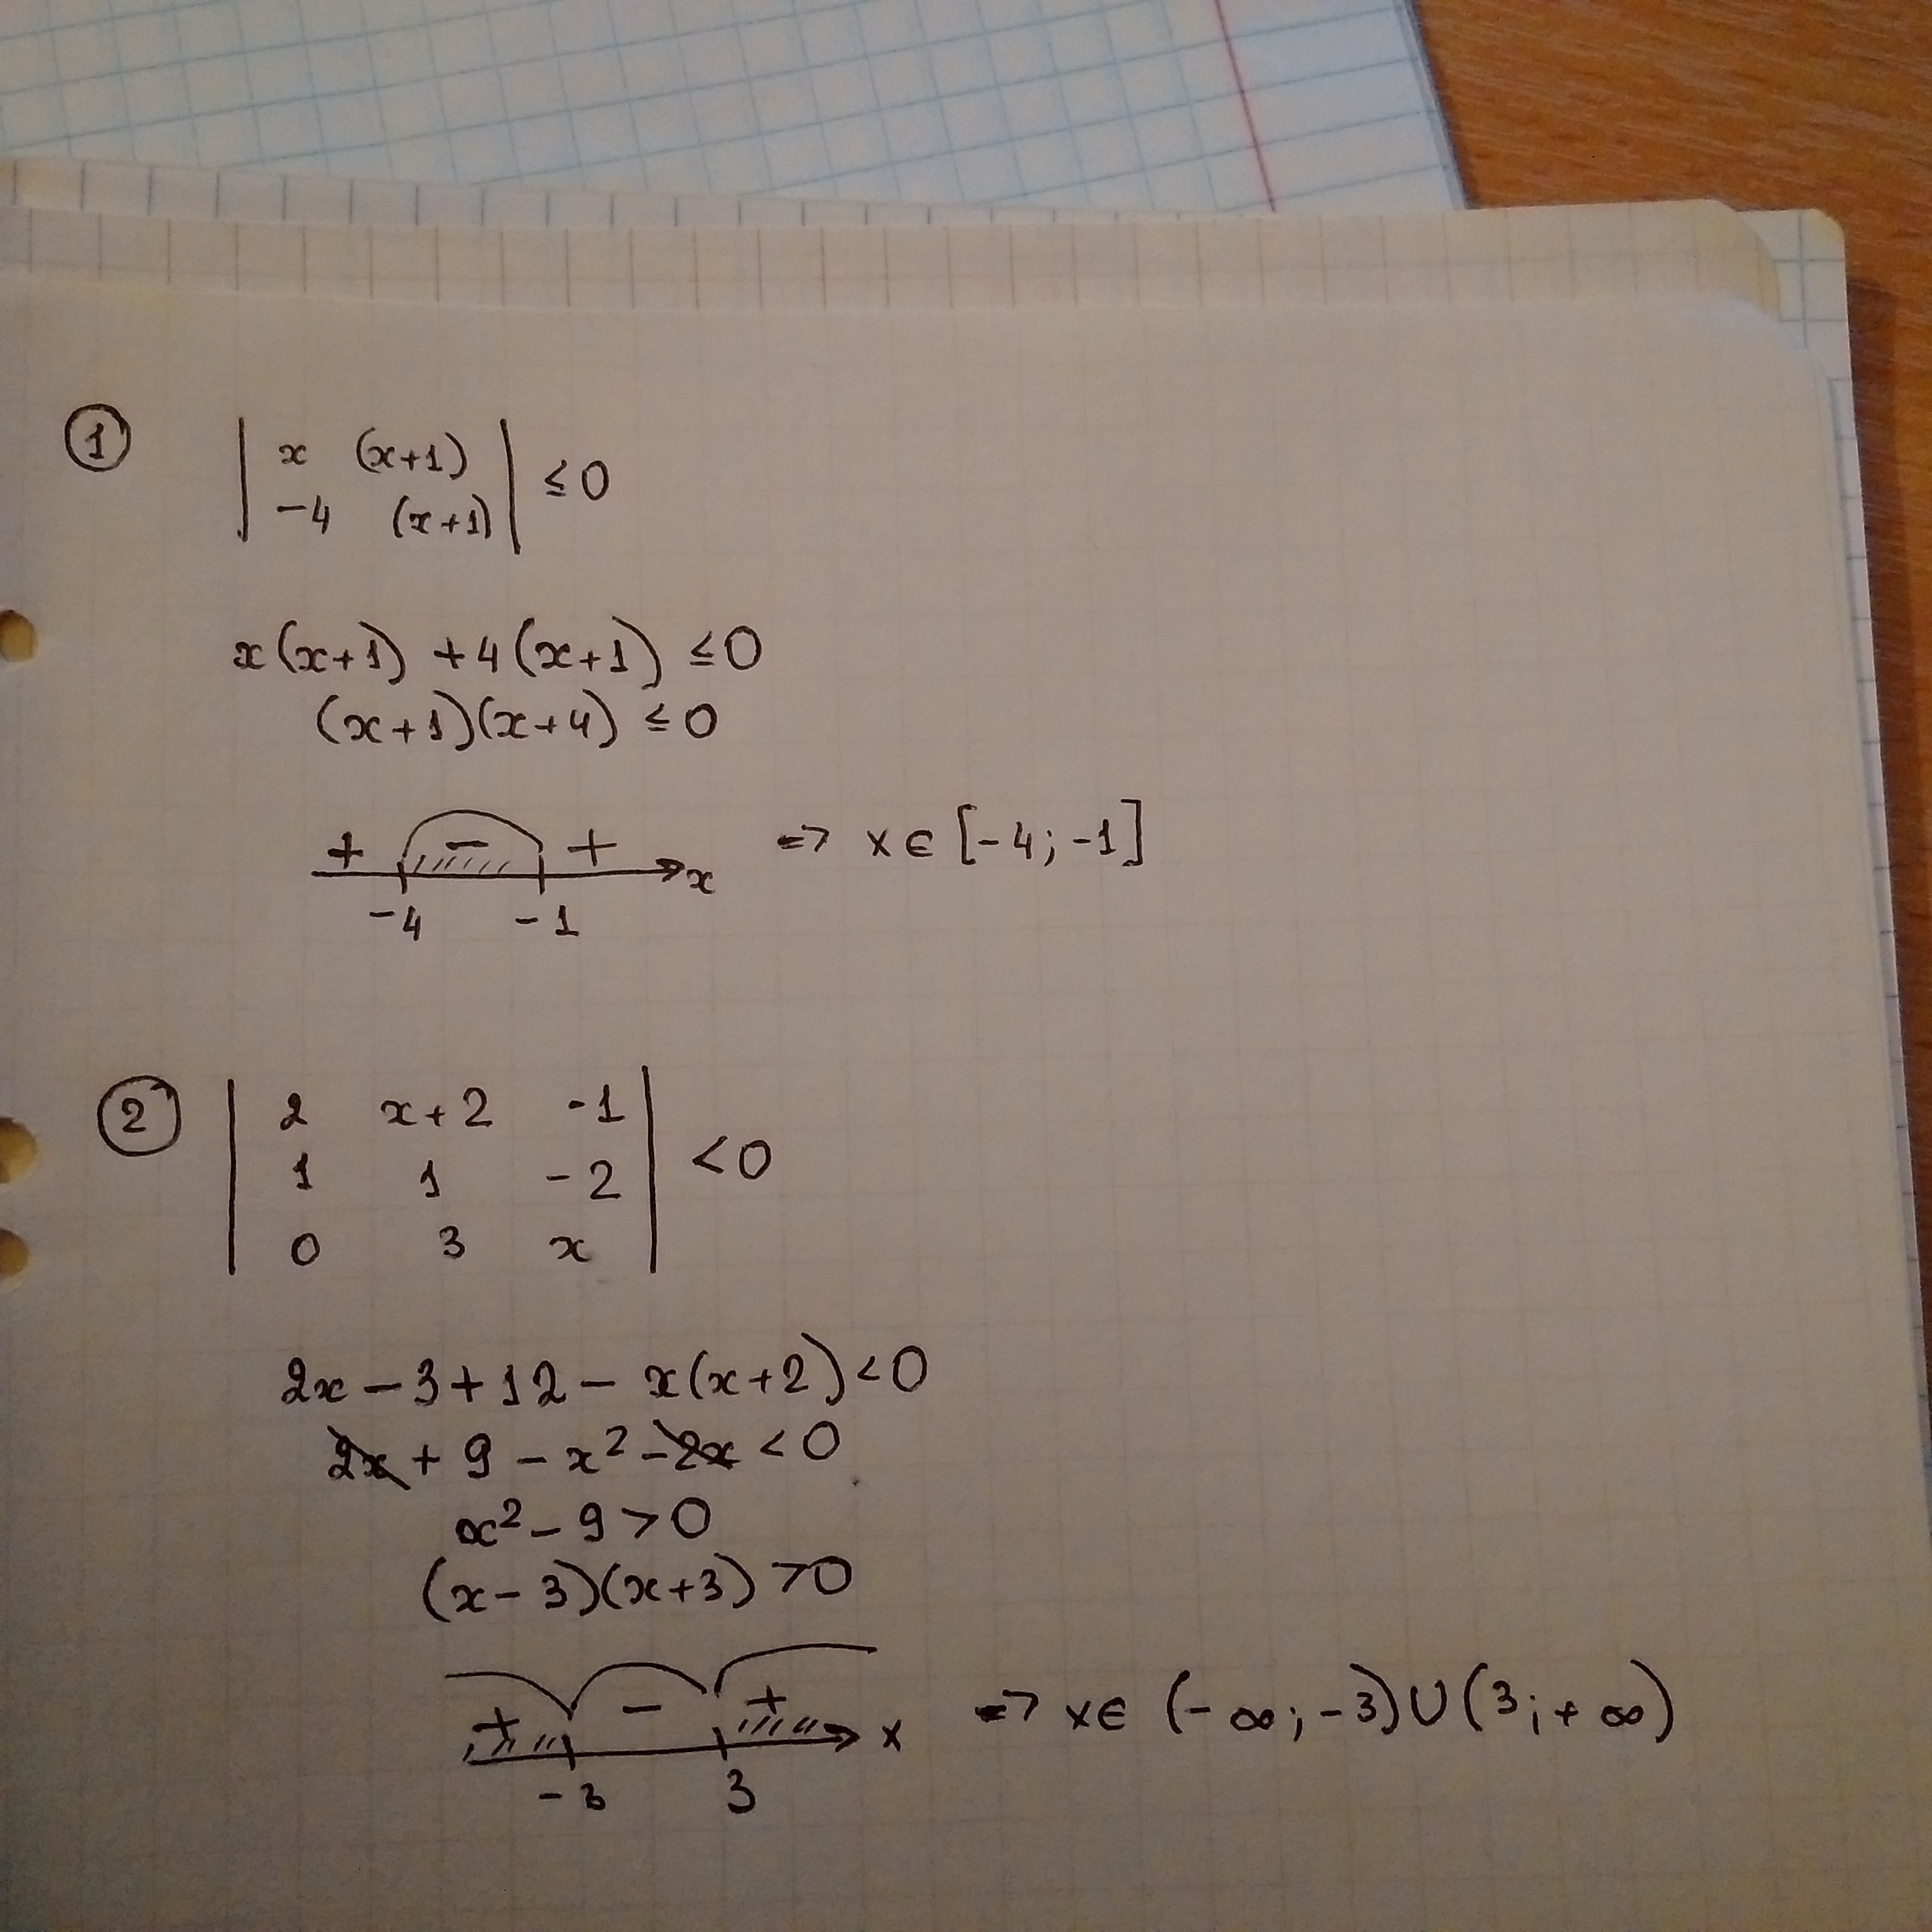 1
| x (x+1) | ≤ 0
| -4 (x+1) |
x(x+1) + 4(x+1) ≤ 0
(x+1)(x+4) ≤ 0
+ - + x => x ∈ [-4; -1]
-4 -1
2
| 2 x+2 -1 |
| 1 1 -2 | < 0
| 0 3 x |
2x - 3 + 12 - x(x+2) < 0
2x + 9 - x² - 2x < 0
x² - 9 > 0
(x-3)(x+3) > 0
+ - + x => x ∈ (-∞; -3) ∪ (3; +∞)
-3 3